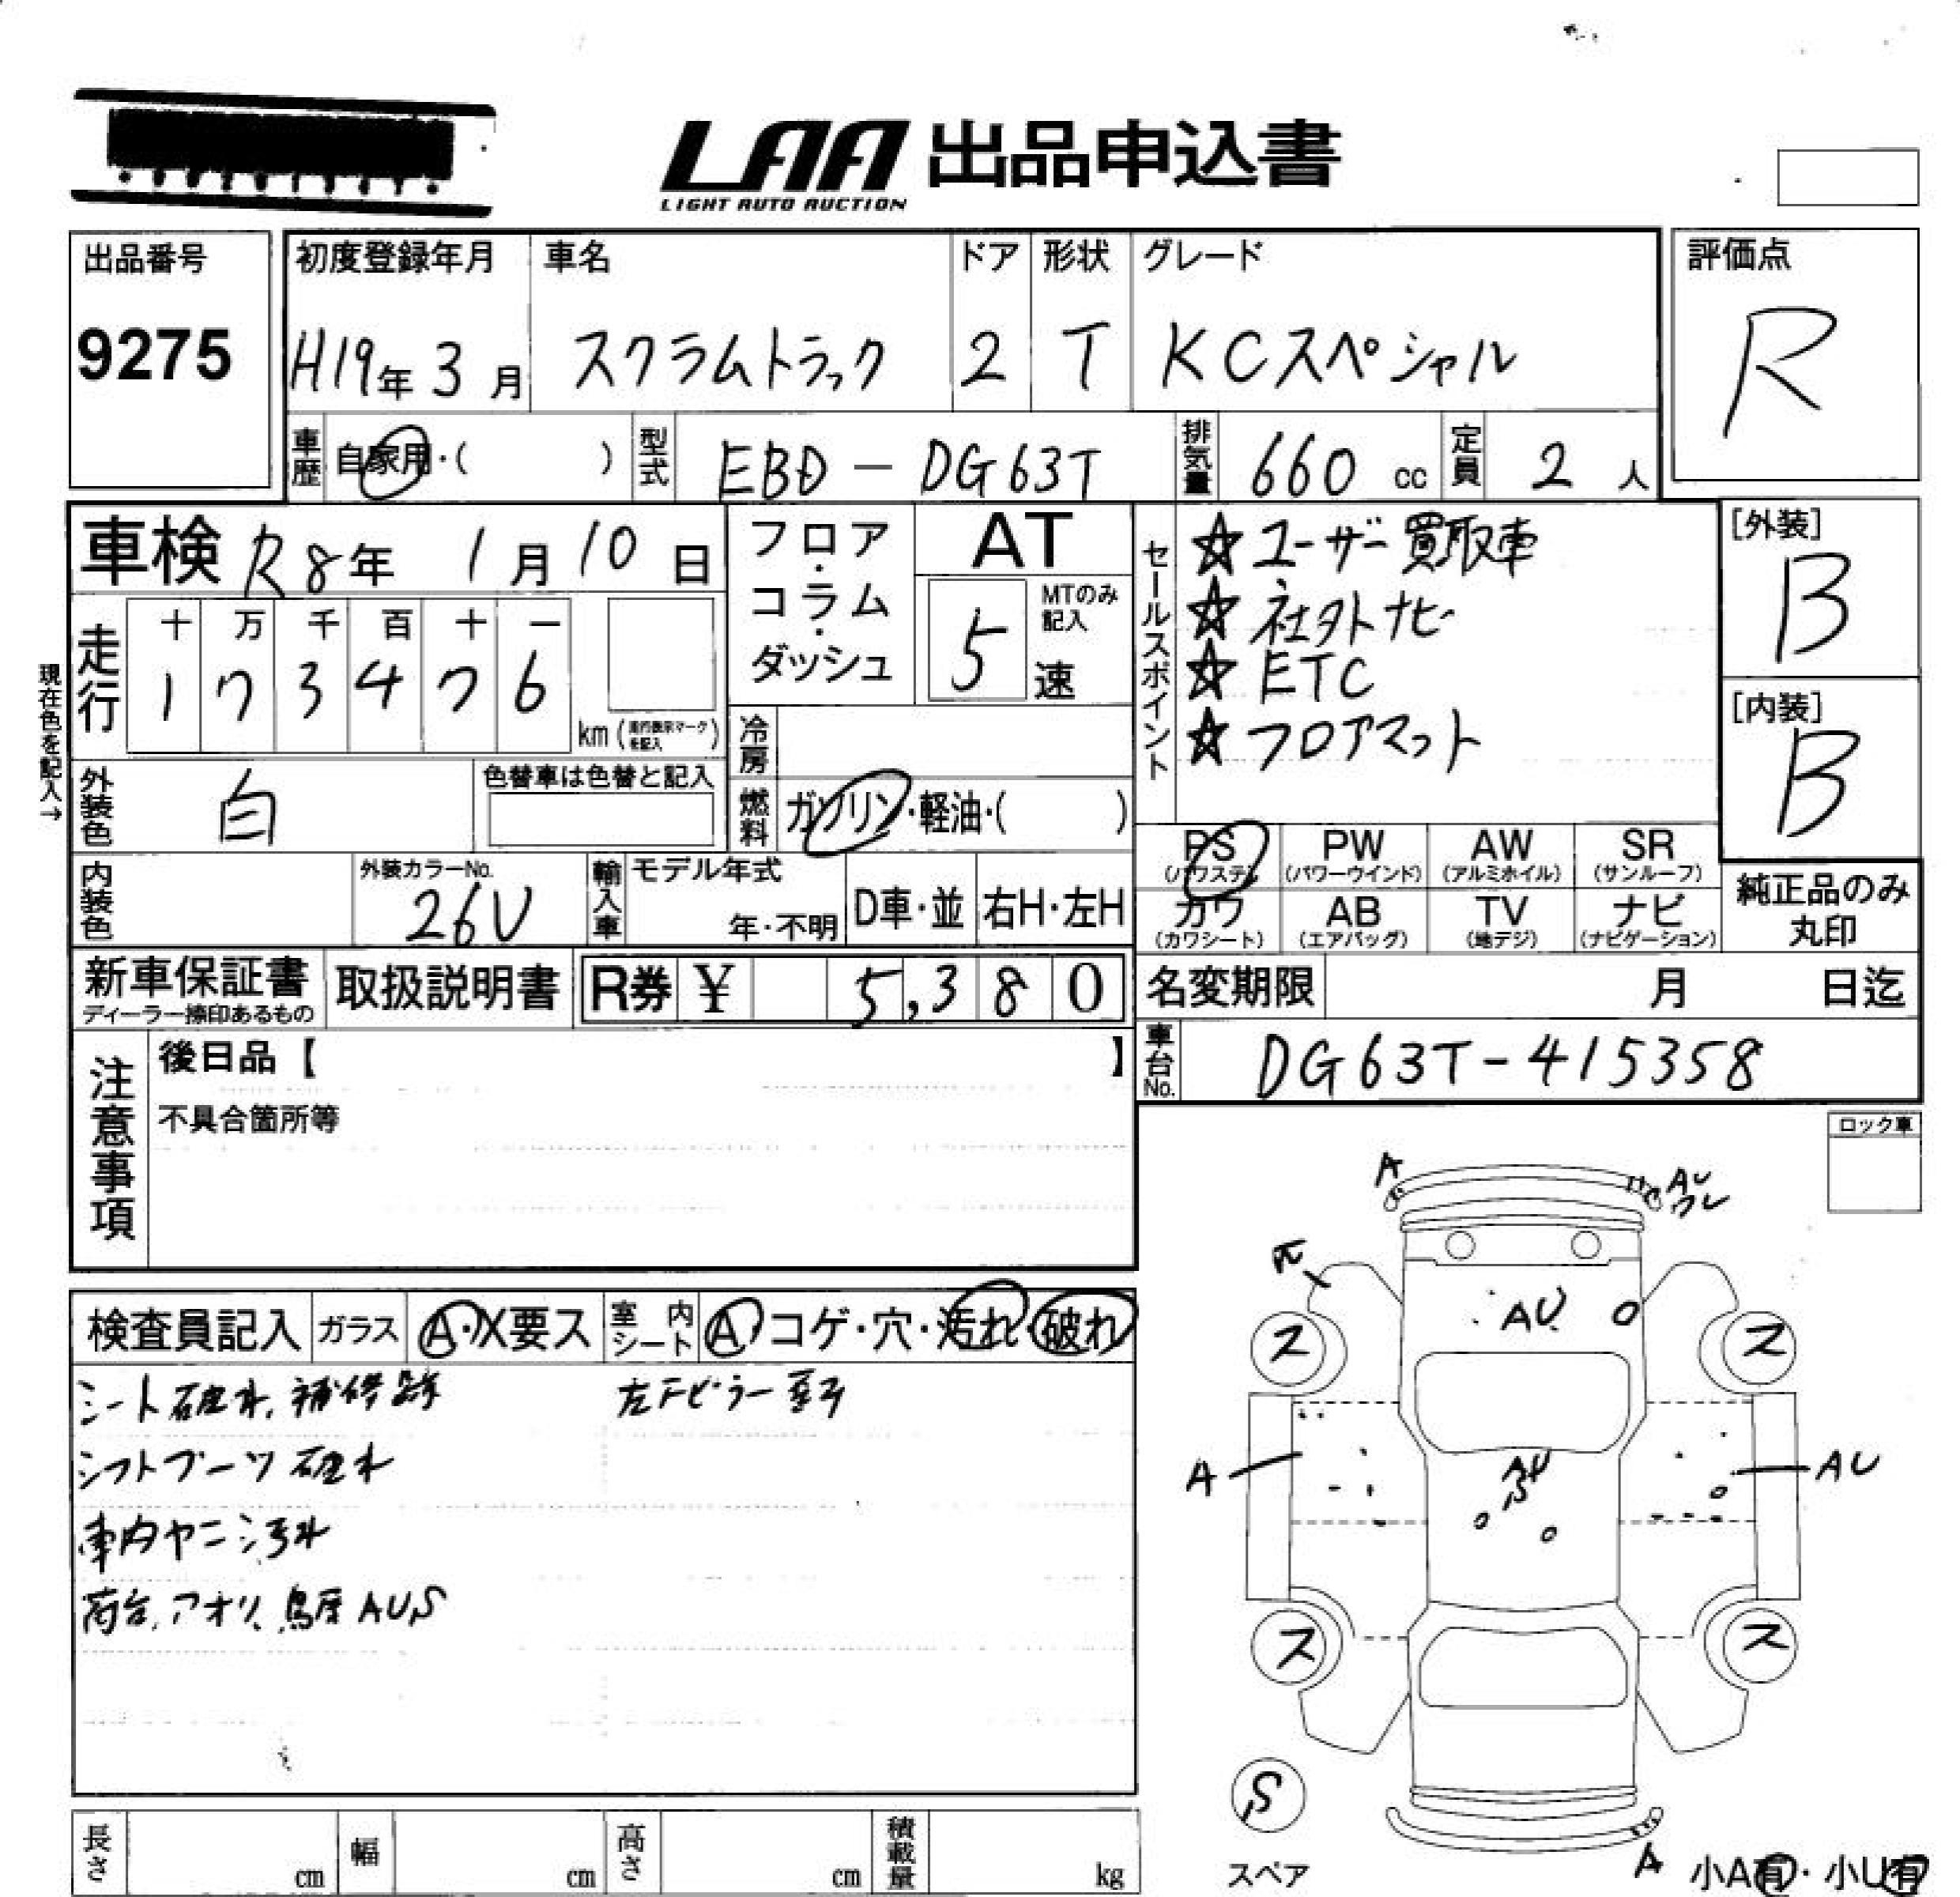 LAA 出品申込書
LIGHT AUTO AUCTION
出品番号
9275
初度登録年月
H19年3月
車名
スクラムトラック
ドア
2
形状
T
グレード
KCスペシャル
評価点
R
車歴 自家用・( )
型式 EBD-DG63T
排気量 660 cc
定員 2 人
車検 R8年 1月10日
フロア・コラム・ダッシュ
AT
5
MTのみ記入
速
セールスポイント
☆ユーザー買取車
☆社外ナビ
☆ETC
☆フロアマット
[外装]
B
[内装]
B
現在色を記入→
走行
十 万 千 百 十 一
1 7 3 4 7 6
km
冷房
外装色 白
色替車は色替と記入
燃料 ガソリン・軽油・( )
内装色
外装カラーNo.
26U
輸入車
モデル年式
年・不明
D車・並
右H・左H
PS (パワステ)
PW (パワーウインド)
AW (アルミホイル)
SR (サンルーフ)
カワ (カワシート)
AB (エアバッグ)
TV (地デジ)
ナビ (ナビゲーション)
純正品のみ丸印
新車保証書
ディーラー捺印あるもの
取扱説明書
R券 ¥ 5,380
名変期限 月 日迄
車台No. DG63T-415358
注意事項
後日品【 】
不具合箇所等
ロック車
検査員記入
ガラス
A・X要ス
室内シート
A コゲ・穴・汚れ 破れ
シート破れ、補修跡
左Fピラー
シフトブーツ破れ
車内ヤニ汚れ
荷台、アオリ、鳥居AUS
A
AU
ワレ
AU
ス
ス
A
AU
S
AU
ス
ス
S
スペア
A
小A有・小U有
長さ cm
幅 cm
高さ cm
積載量 kg